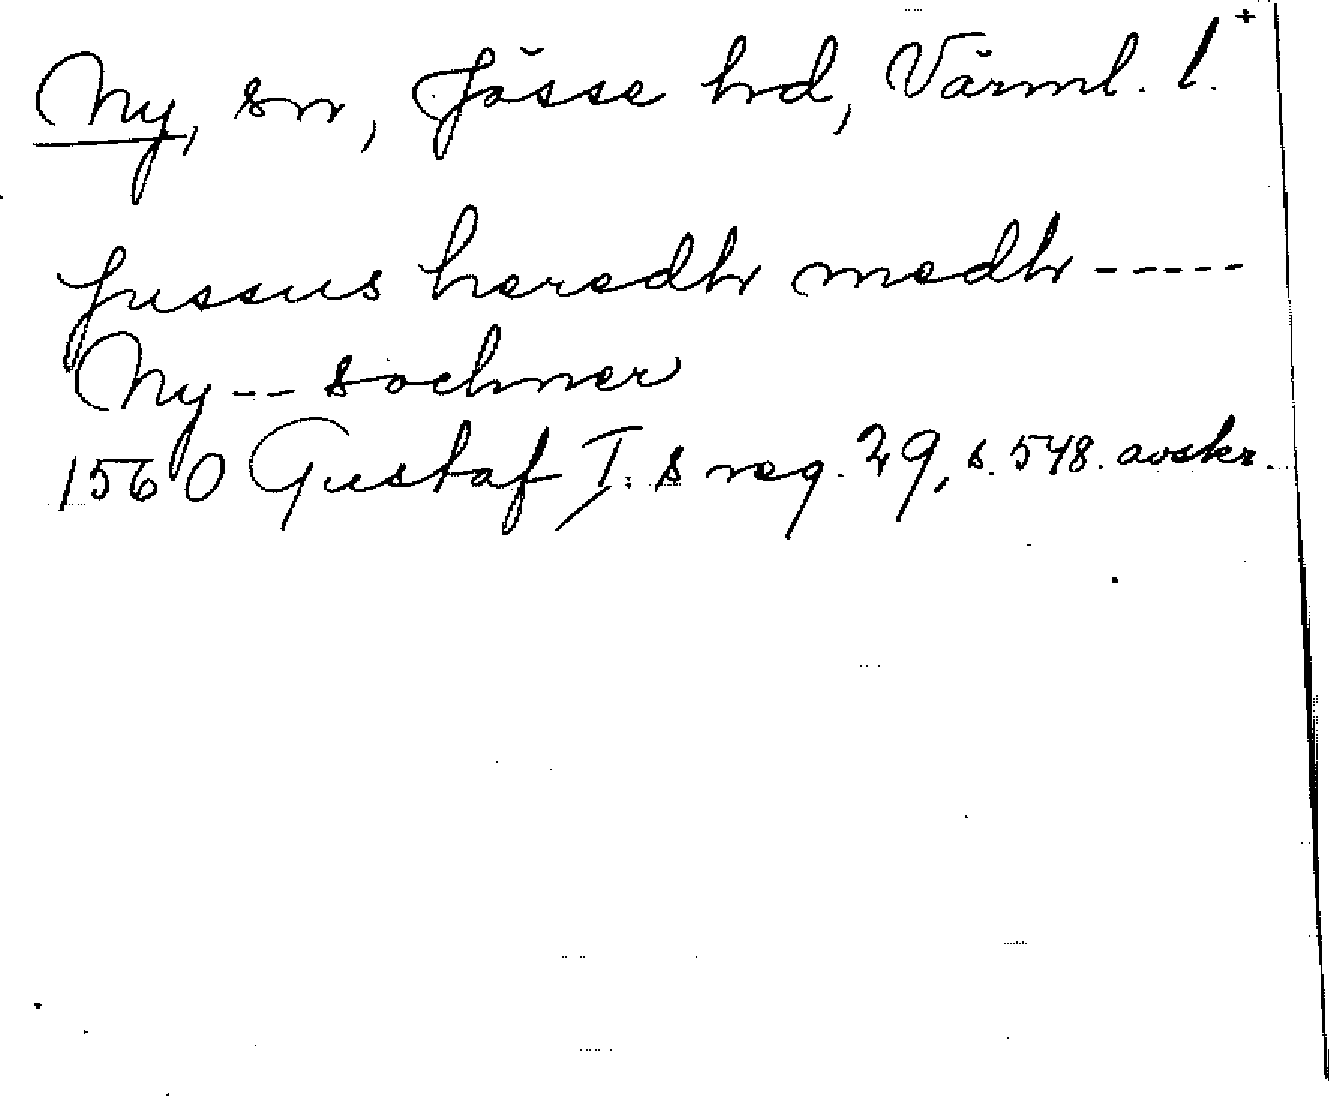 Ny, sn, Jösse hd, Värml. l. +
Jussus heredh medh -----
Ny -- sochner
1560 Gustaf I:s reg. 29, s. 548. avskr.